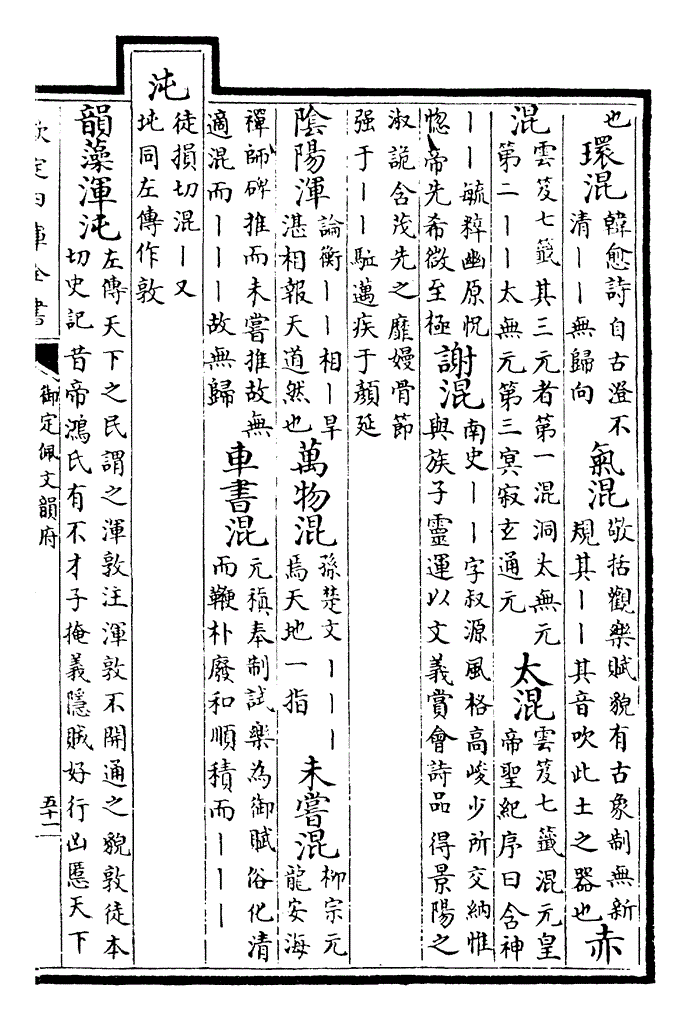 也
環混
韓愈詩自古澄不
清丨丨無歸向
氣混
敬括觀樂賦貌有古象制無新
規其丨丨其音吹此土之器也
赤
混
雲笈七籤其三元者第一混洞太無元
第二丨丨太無元第三冥寂玄通元
太混
雲笈七籤混元皇
帝聖紀序曰含神
丨丨毓粹幽原怳
惚帝先希微至極
謝混
南史丨丨字叔源風格高峻少所交納惟
與族子靈運以文義賞會詩品得景陽之
淑詭含茂先之靡嫚骨節
强于丨丨駈邁疾于顔延
陰陽渾
論衡丨丨相丨旱
湛相報天道然也
萬物混
孫楚文丨丨丨
焉天地一指
未嘗混
栁宗元
龍安海
禪師碑推而未嘗推故無
適混而丨丨丨故無歸
車書混
元稹奉制試樂為御賦俗化清
而鞭朴廢和順積而丨丨丨
沌
徒損切混丨又
坉同左傳作敦
韻藻渾沌
左傳天下之民謂之渾敦注渾敦不開通之貌敦徒本
切史記昔帝鴻氏有不才子掩義隱賊好行凶慝天下
欽定四庫全書
御定佩文韻府
五十一